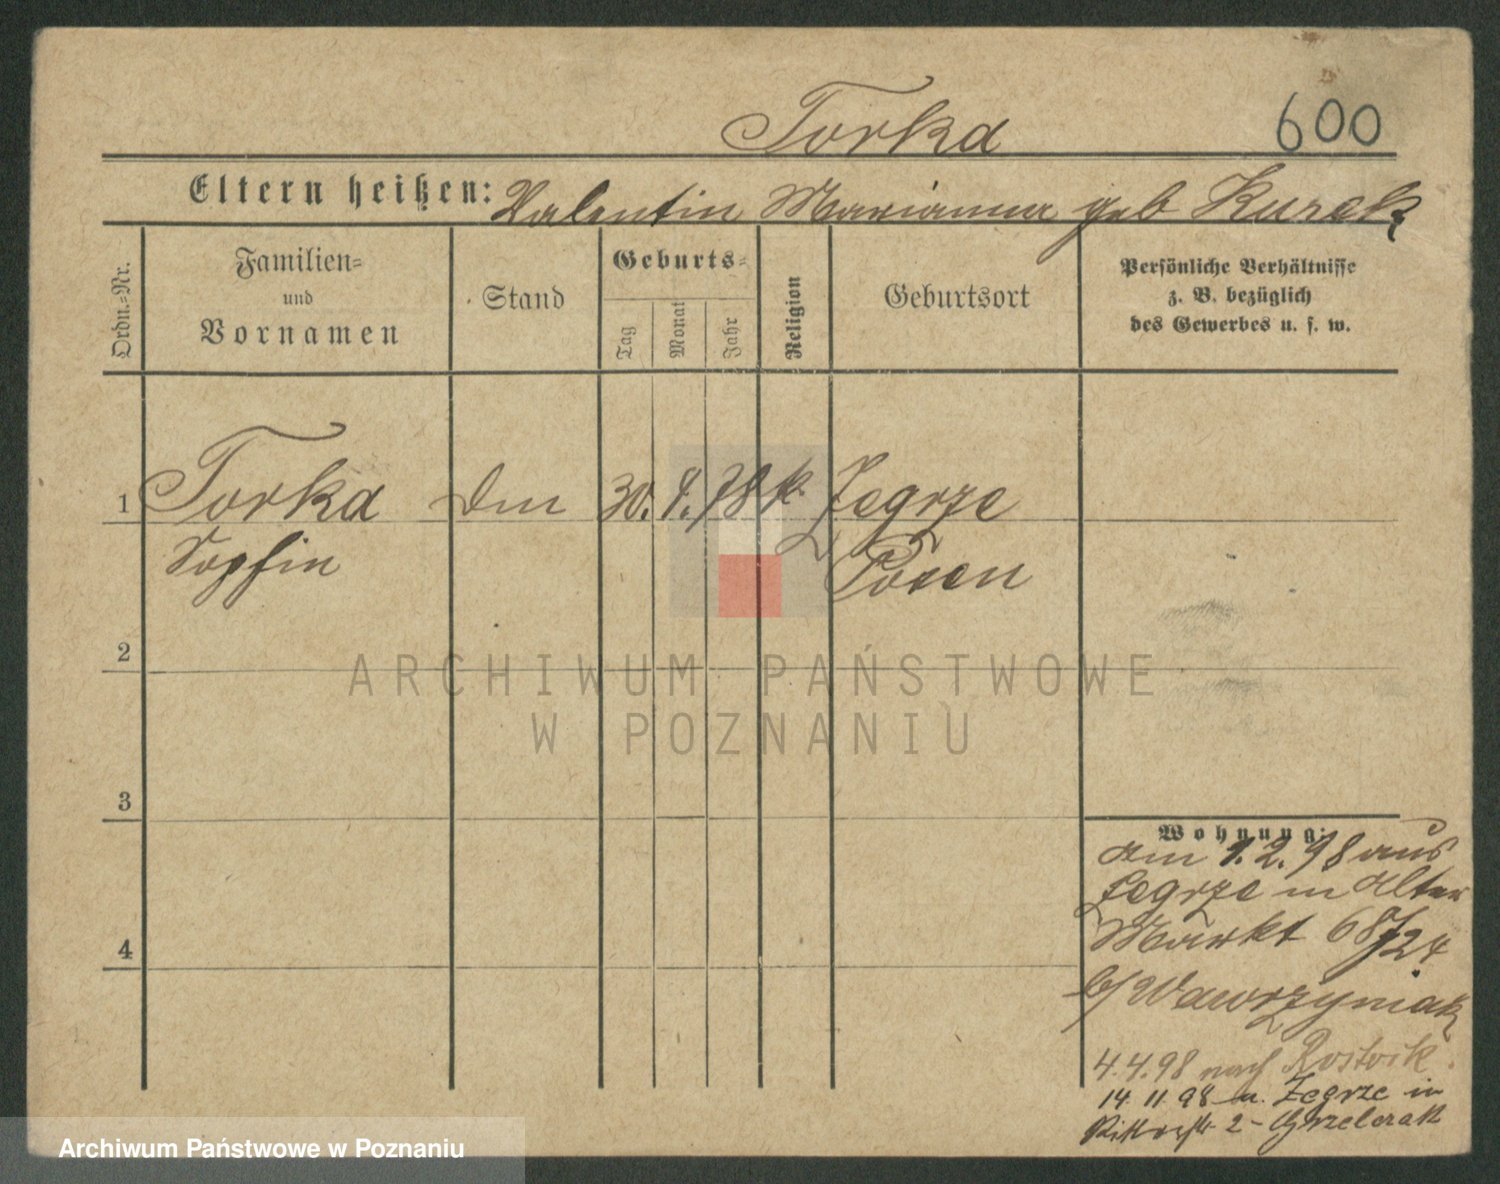 Torka 600
Eltern heißen: Valentin Marianna geb Kurek
Ordn.-Nr.
Familien-
und
Vornamen
Stand
Geburts-
Tag
Monat
Jahr
Religion
Geburtsort
Persönliche Verhältnisse
z. B. bezüglich
des Gewerbes u. s. w.
1 Torka 30. 78 k. Zegrze
Sophie Posen
2
ARCHIWUM PAŃSTWOWE
W POZNANIU
3
Wohnung:
am 1.2.98 aus
Zegrze in Alter
Markt 68/24
b/ Wawrzyniak
4
4.4.98 nach Rostock.
14.11.98 Zegrze in
Ritterstr. 2 - Grzelczak
Archiwum Państwowe w Poznaniu